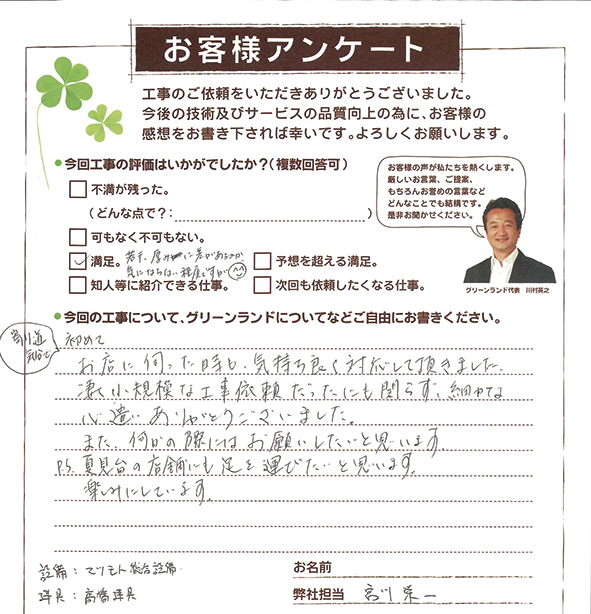 お客様アンケート
工事のご依頼をいただきありがとうございました。
今後の技術及びサービスの品質向上の為に、お客様の
感想をお書き下されば幸いです。よろしくお願いします。
●今回工事の評価はいかがでしたか？（複数回答可）
不満が残った。
（どんな点で？：　）
可もなく不可もない。
満足。 若干、厚みに差があるのが
気にならない程度ですが
予想を超える満足。
知人等に紹介できる仕事。
次回も依頼したくなる仕事。
お客様の声が私たちを熱くします。
厳しいお言葉、ご提案、
もちろんお誉めの言葉など
どんなことでも結構です。
是非お聞かせください。
グリーンランド代表　川村英之
●今回の工事について、グリーンランドについてなどご自由にお書きください。
寄り道
初めて
お店に伺った時も、気持ち良く対応して頂きました。
凄く小規模な工事依頼だったにも関らず、細やかな
心遣いありがとうございました。
また、何かの際にはお願いしたいと思います。
P.S. 夏見台の店舗にも足を運びたいと思います。
楽しみにしています。
設備：
建具：高橋建具
お名前
弊社担当　宮川 栄一